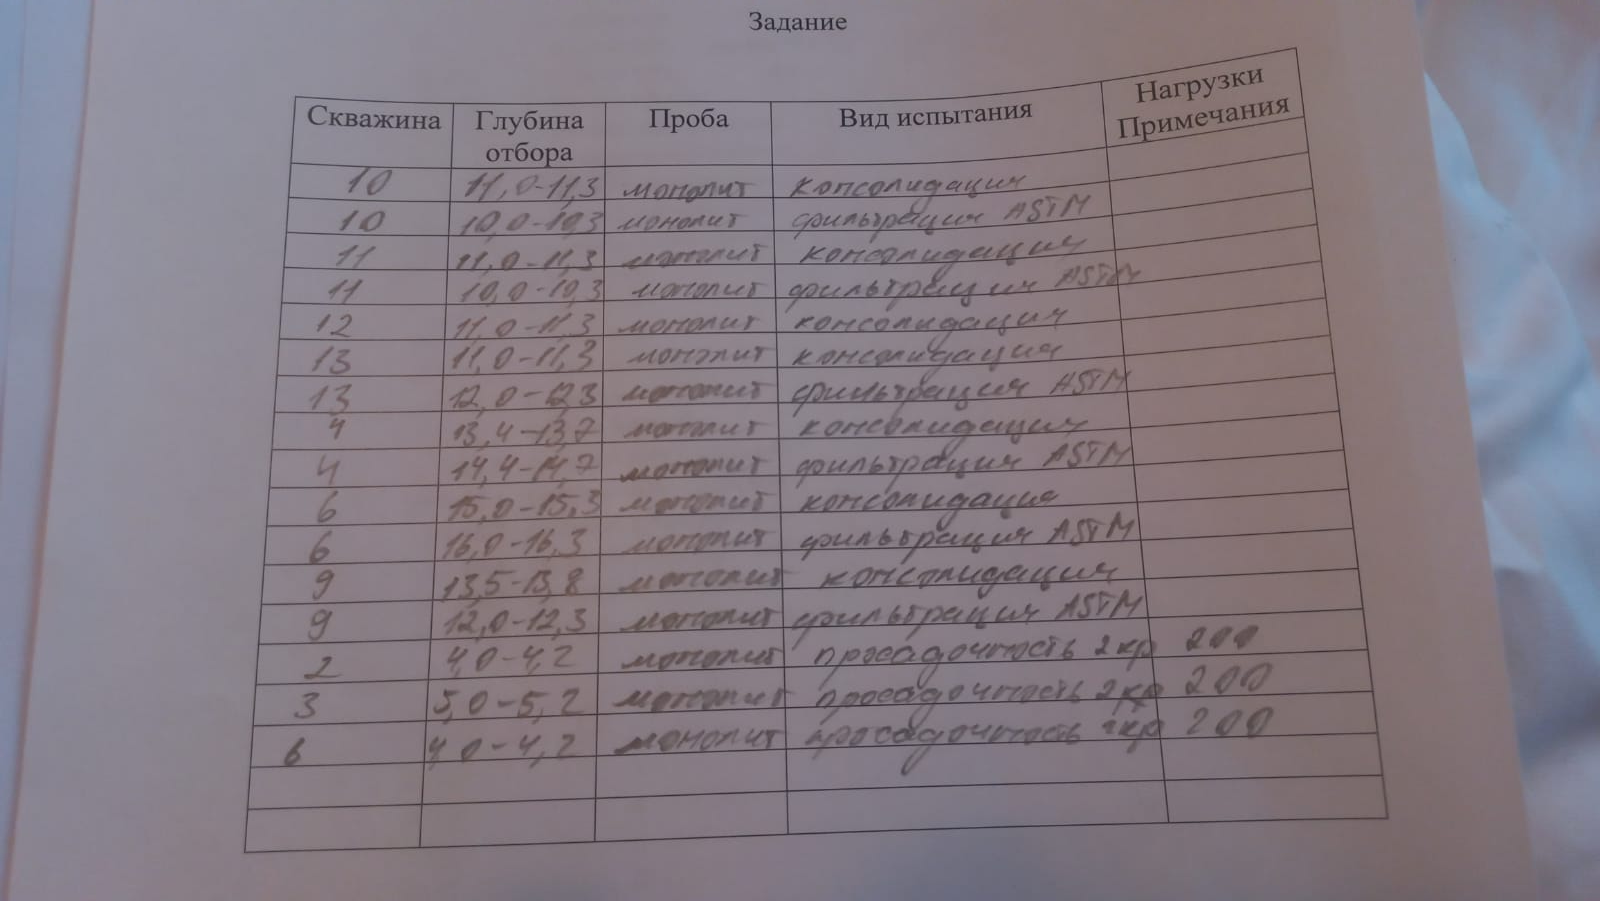 Задание
Скважина Глубина отбора Проба Вид испытания Нагрузки Примечания
10 11,0-11,3 монолит консолидация
10 10,0-10,3 монолит фильтрация ASTM
11 11,0-11,3 монолит консолидация
11 10,0-10,3 монолит фильтрация ASTM
12 11,0-11,3 монолит консолидация
13 11,0-11,3 монолит консолидация
13 12,0-12,3 монолит фильтрация ASTM
4 13,4-13,7 монолит консолидация
4 14,4-14,7 монолит фильтрация ASTM
6 15,0-15,3 монолит консолидация
6 16,0-16,3 монолит фильтрация ASTM
9 13,5-13,8 монолит консолидация
9 12,0-12,3 монолит фильтрация ASTM
2 4,0-4,2 монолит просадочность 2кр 200
3 5,0-5,2 монолит просадочность 2кр 200
6 4,0-4,2 монолит просадочность 2кр 200